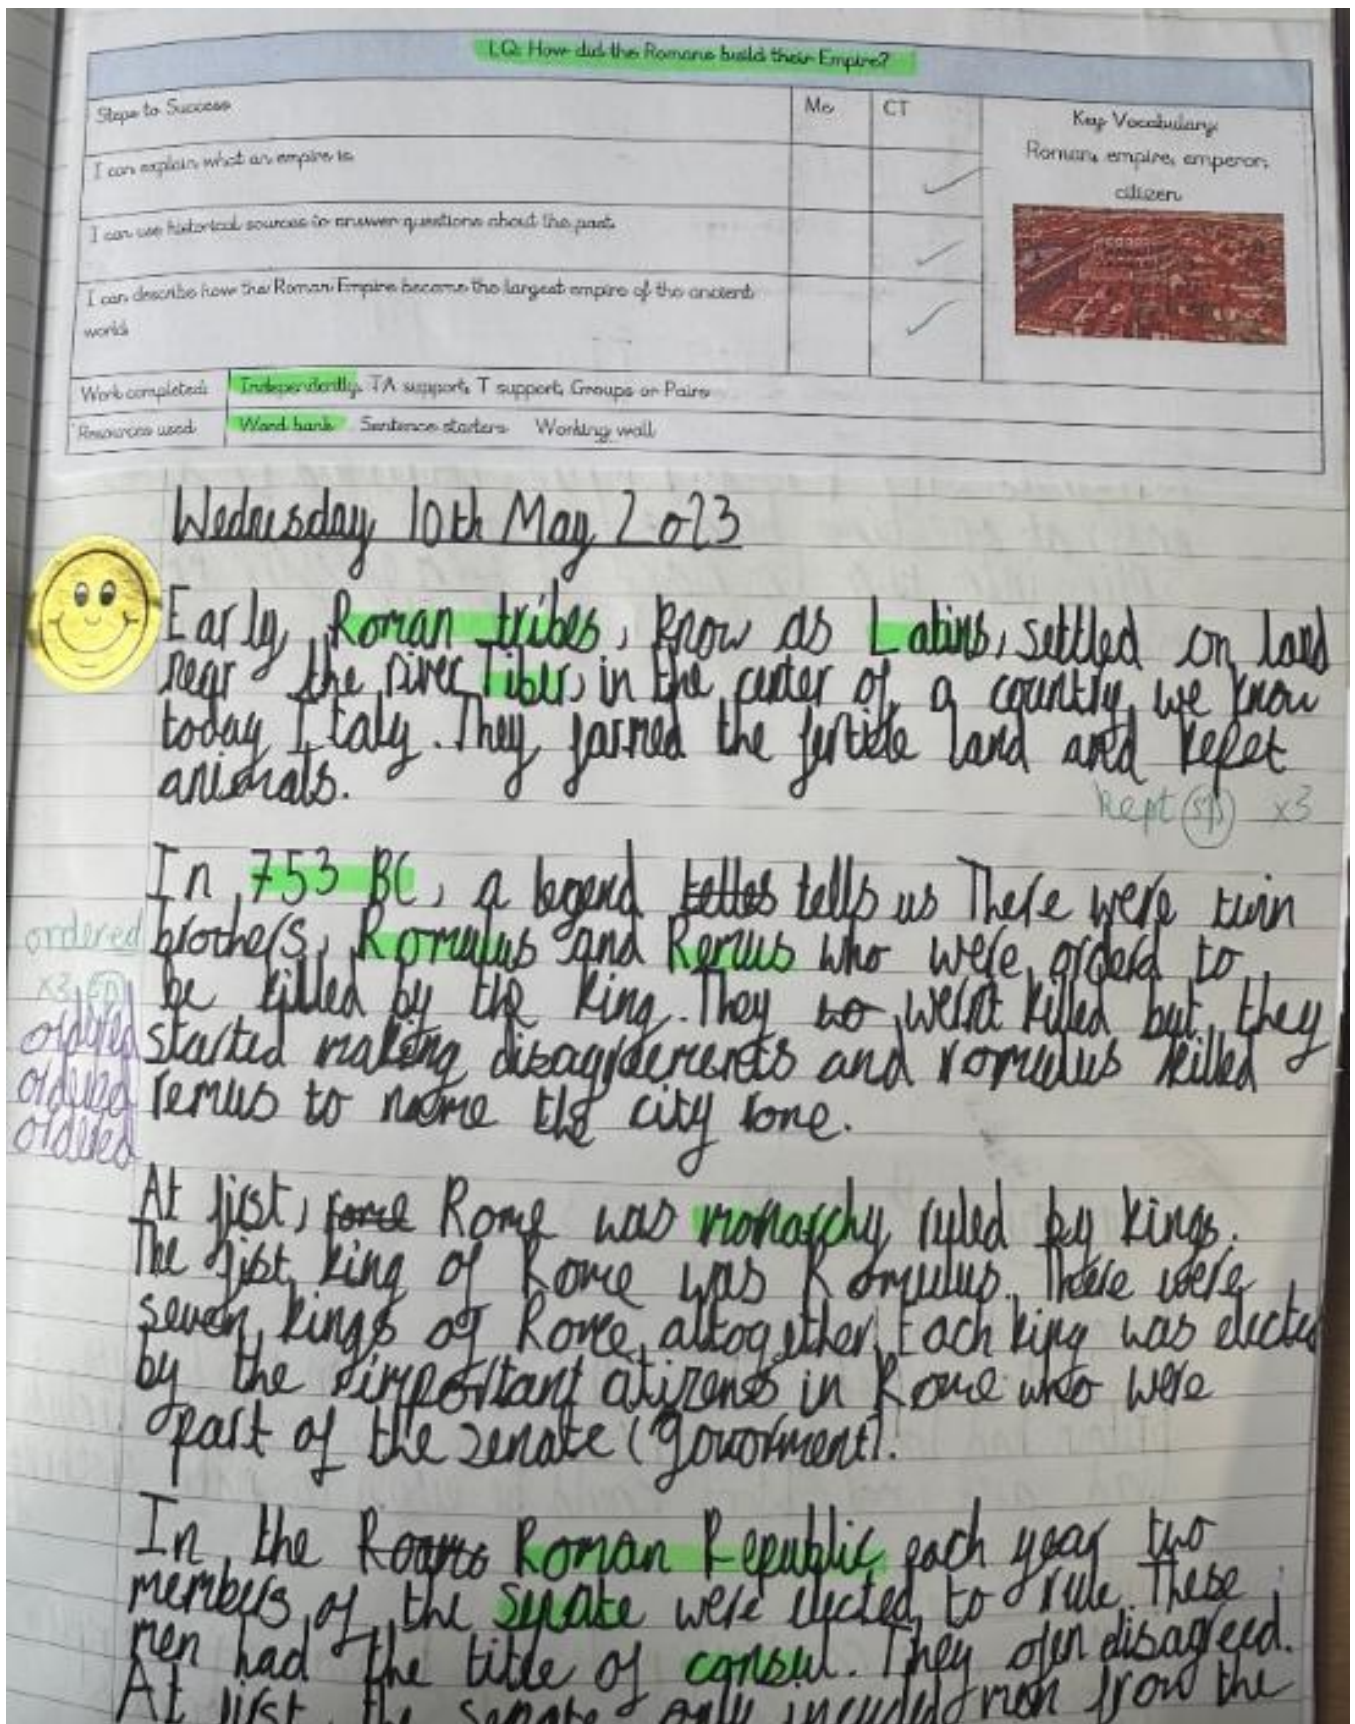 LQ: How did the Romans build their Empire?
Steps to Success
Me
CT
Key Vocabulary:
Roman, empire, emperor,
citizen
I can explain what an empire is.
I can use historical sources to answer questions about the past.
I can describe how the Roman Empire became the largest empire of the ancient
world.
Work completed: Independently, TA support, T support, Groups or Pairs
Resources used Word bank Sentence starters Working wall
Wednesday 10th May 2023
Early Roman tribes, know as Latins, settled on land
near the river Tiber, in the center of a country we know
today Italy. They farmed the fertile land and kepet
animals.
kept sp x3
In 753 BC, a legend telles tells us There were twin
brothers, Romulus and Remus who were orderd to
be killed by the king. They wernt killed but they
started making disagreements and romulus killed
remus to name the city rome.
ordered
x3 sp
ordered
ordered
ordered
At first, rome Rome was monarchy ruled by kings.
The first king of Rome was Romulus. There were
seven kings of Rome altogether. Each king was elected
by the important citizens in Rome who were
part of the senate (govorment).
In the Roman Republic, each year two
members of the Senate were elected to rule. These
men had the title of consul. They ofen disagreed.
At first, the senate only included men from the